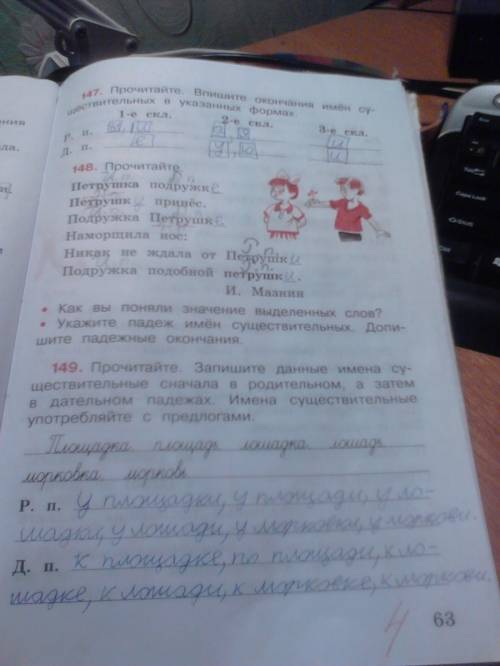 147. Прочитайте. Впишите окончания имён су-
ществительных в указанных формах.
1-е скл. 2-е скл. 3-е скл.
Р. п. ы, и а, я и
Д. п. е у, ю и
148. Прочитайте.
Петрушка подружке
Петрушку принёс.
Подружка Петрушке
Наморщила нос:
Никак не ждала от Петрушки
Подружка подобной петрушки.
И. Мазнин
• Как вы поняли значение выделенных слов?
• Укажите падеж имён существительных. Допи-
шите падежные окончания.
149. Прочитайте. Запишите данные имена су-
ществительные сначала в родительном, а затем
в дательном падежах. Имена существительные
употребляйте с предлогами.
Площадка, площадь, лошадка, лошадь,
морковка, морковь.
Р. п. У площадки, у площади, у ло-
шадки, у лошади, у морковки, у моркови.
Д. п. К площадке, по площади, к ло-
шадке, к лошади, к морковке, к моркови.
4
63